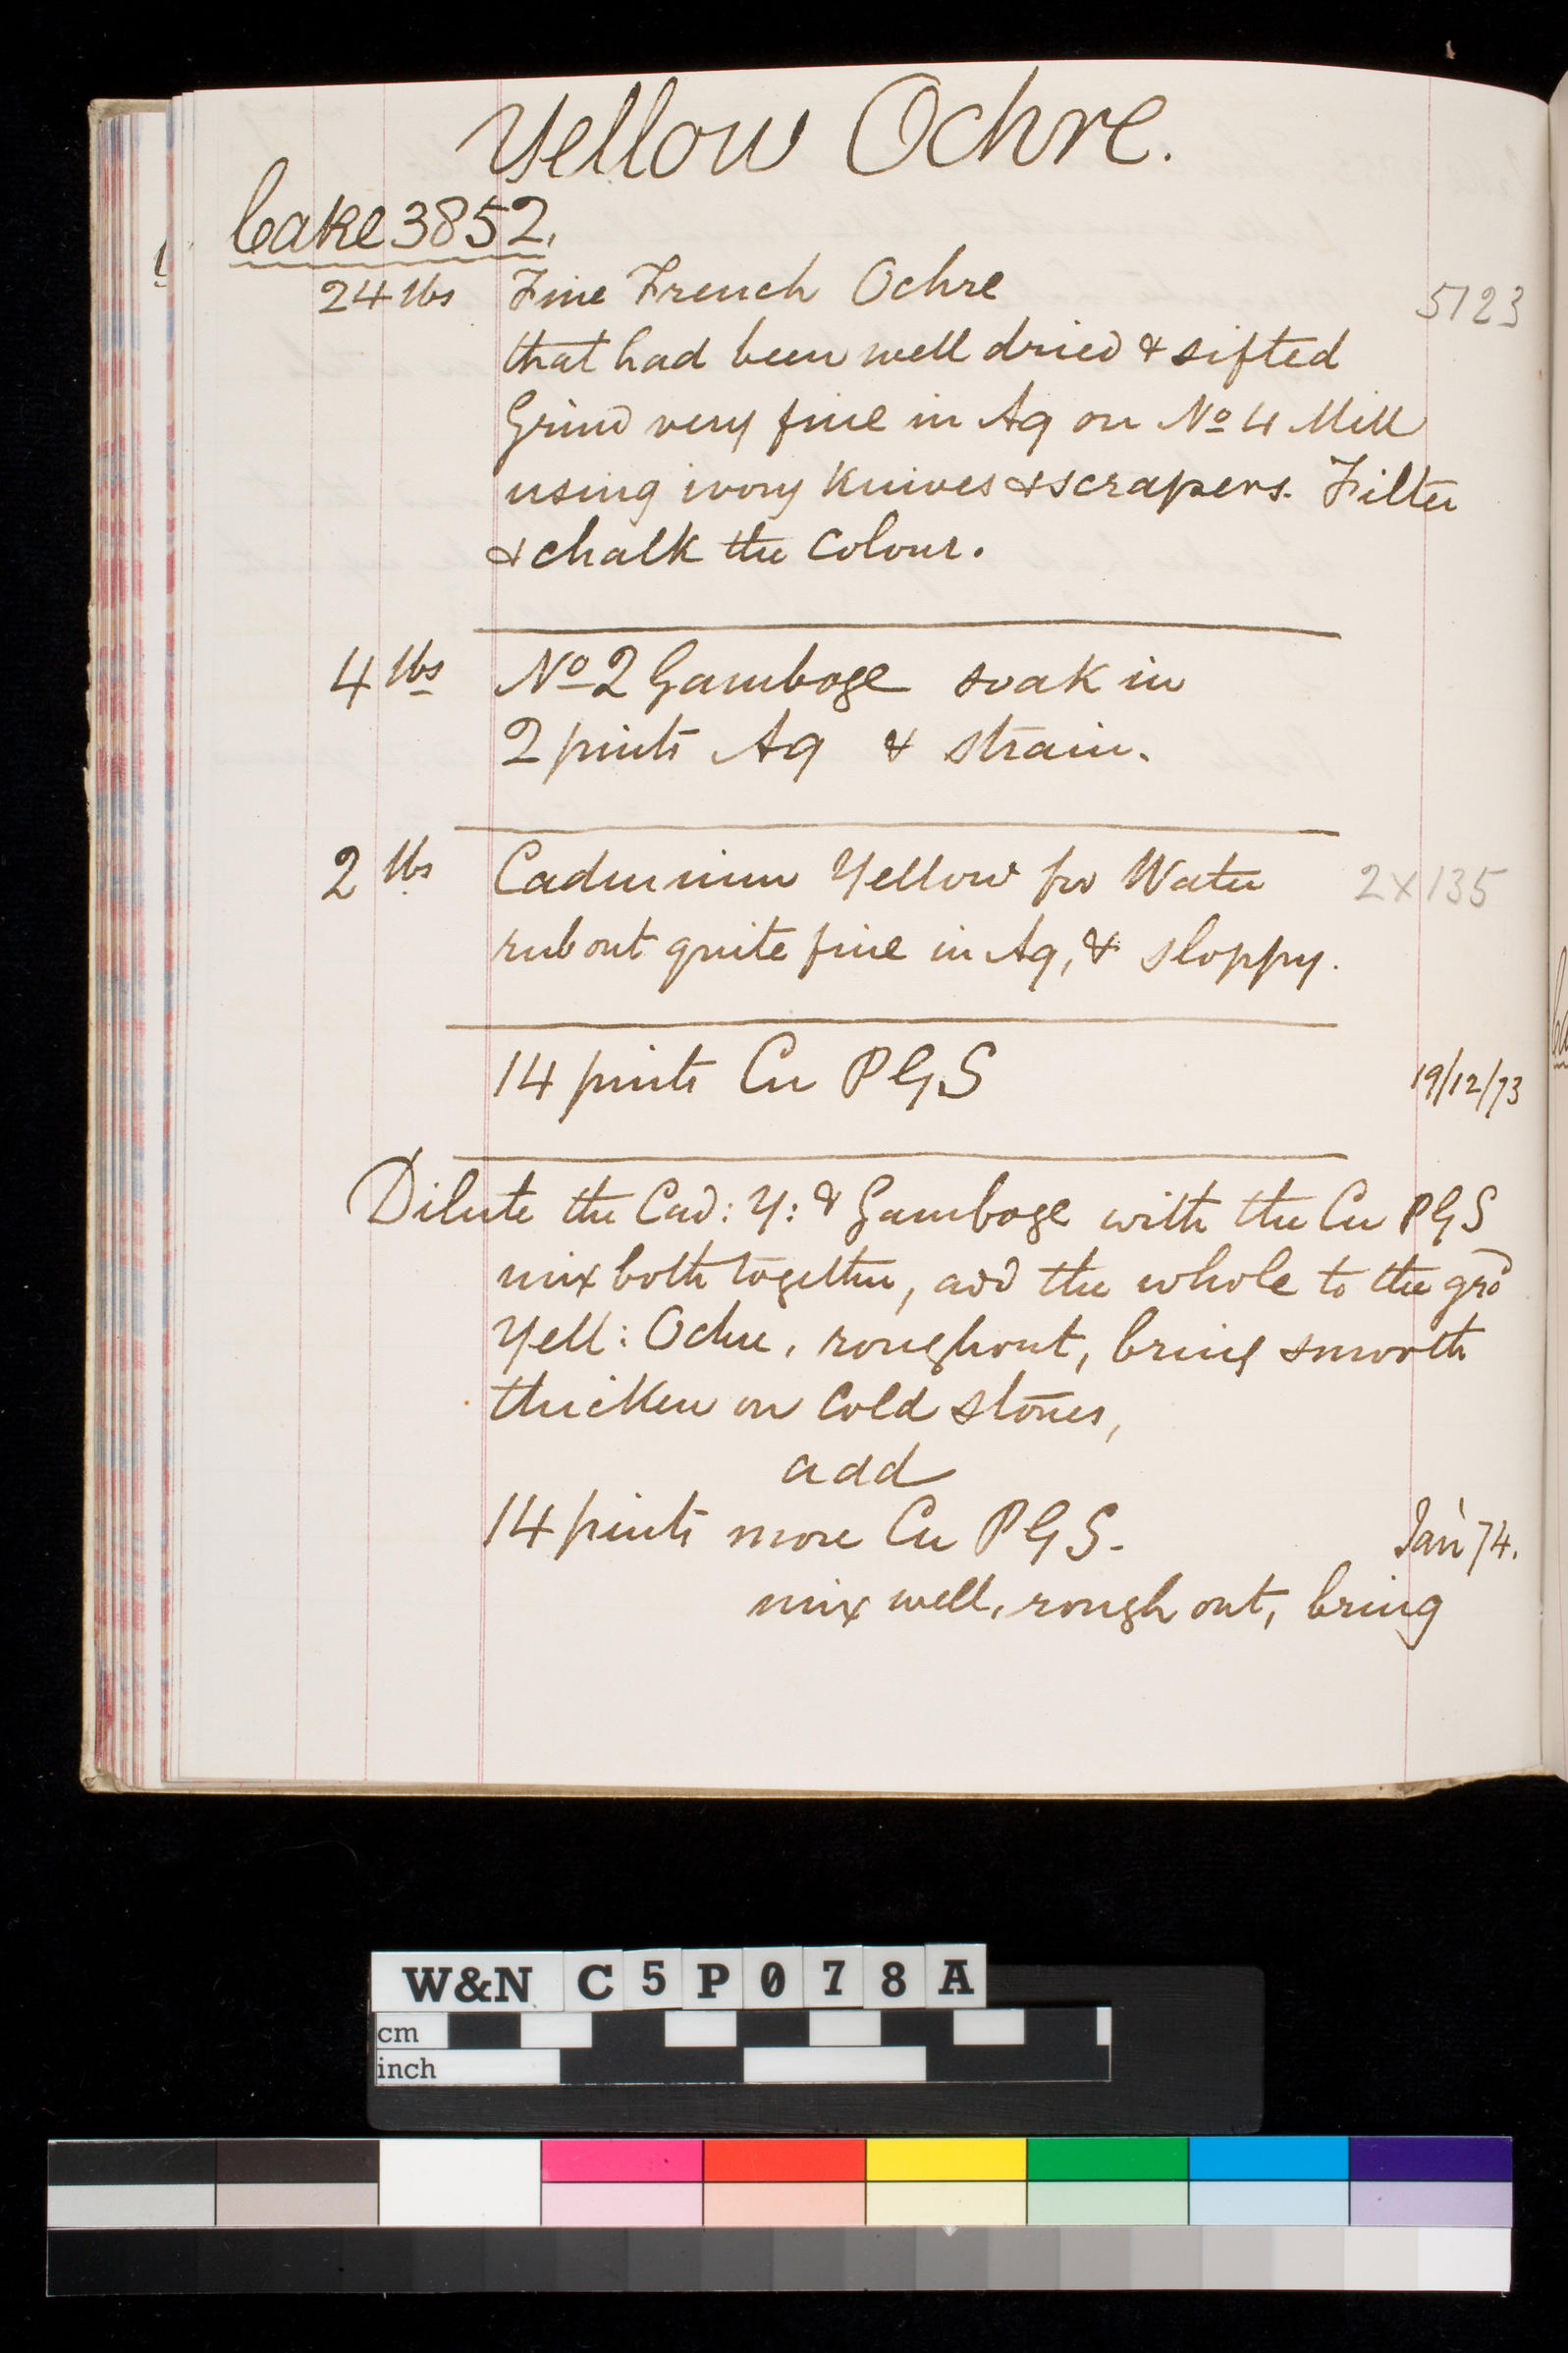 Yellow Ochre.
Cake 3852.
24 lbs Fine French Ochre 5123
that had been well dried & sifted
Grind very fine in Aq on No 4 Mill
using ivory Knives & scrapers. Filter
& chalk the Colour.
4 lbs No 2 Gamboge soak in
2 pints Aq & strain.
2 lbs Cadmium Yellow for Water 2 x 135
rub out quite fine in Aq, & sloppy.
14 pints Cu PGS 19/12/73
Dilute the Cad: Y: & Gamboge with the Cu PGS
mix both together, add the whole to the grd
Yell: Ochre, rough out, bring smooth
thicken on Cold stones,
add
14 pints more Cu PGS. Jan 74.
mix well, rough out, bring
W&N C5P078A
cm
inch